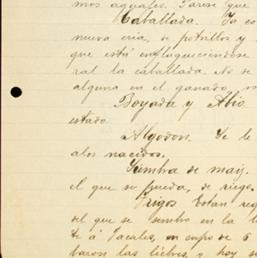 mos aguales. Parese que
Caballada. Ya co
nueva cria, se potrillos y
que está enflaqueciendose
ral la caballada. No se
alguna en el ganado,
Boyada y Abio
estado
Algodon. Se le
alos nacidos.
Siembra de maiz.
el que se pueda, de riego.
Trigos Estan reg
sel que se sembro en la l
te á Jacales, en cupo de 6
baron las liebres, y hoy se